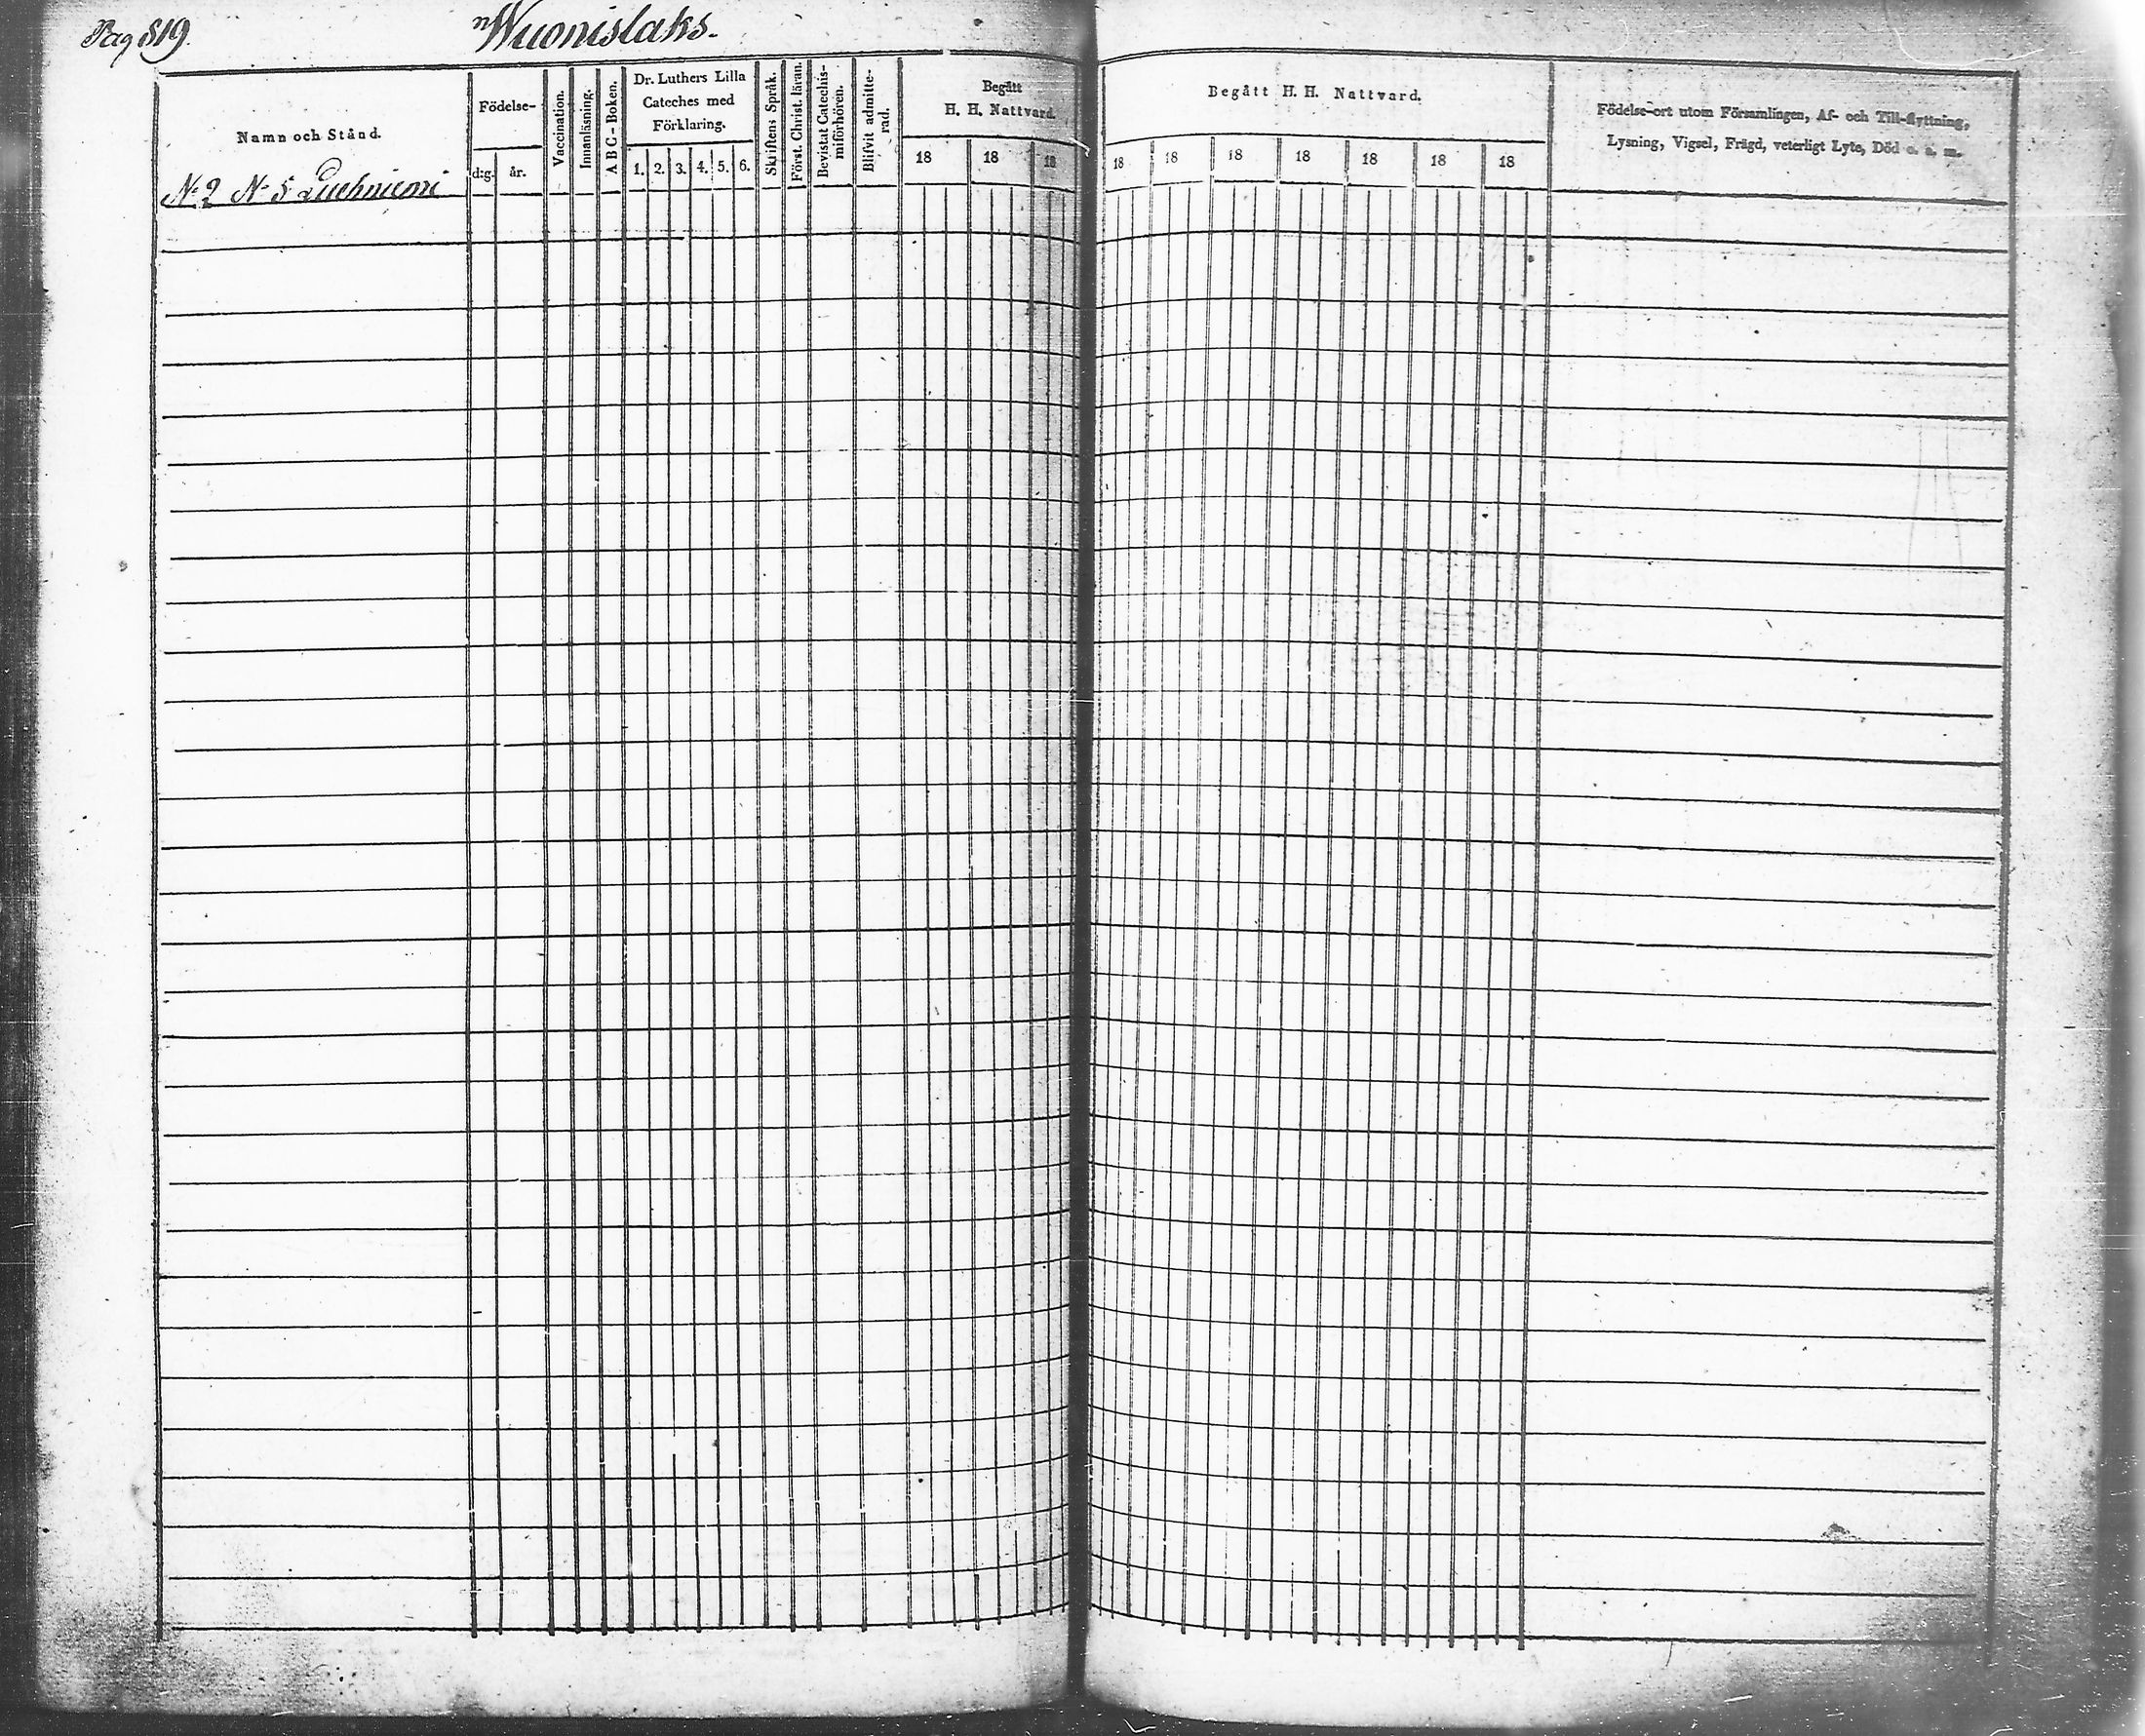 Pag 819.
Wuonislaks.
Namn och Stånd.
Födelse-
d:g. år.
Vaccination.
Innanläsning.
A B C - Boken.
Dr. Luthers Lilla
Cateches med
Förklaring.
1. 2. 3. 4. 5. 6.
Skriftens Språk.
Först. Christ. läran.
Bevistat Catechis-
miförhören.
Blifvit admitte-
rad.
Begått
H. H. Nattvard.
18 18 18
Begått H. H. Nattvard.
18 18 18 18 18 18 18
Födelse-ort utom Församlingen, Af- och Till-flyttning,
Lysning, Vigsel, Frägd, veterligt Lyte, Död o. s. m.
N:2 N:5